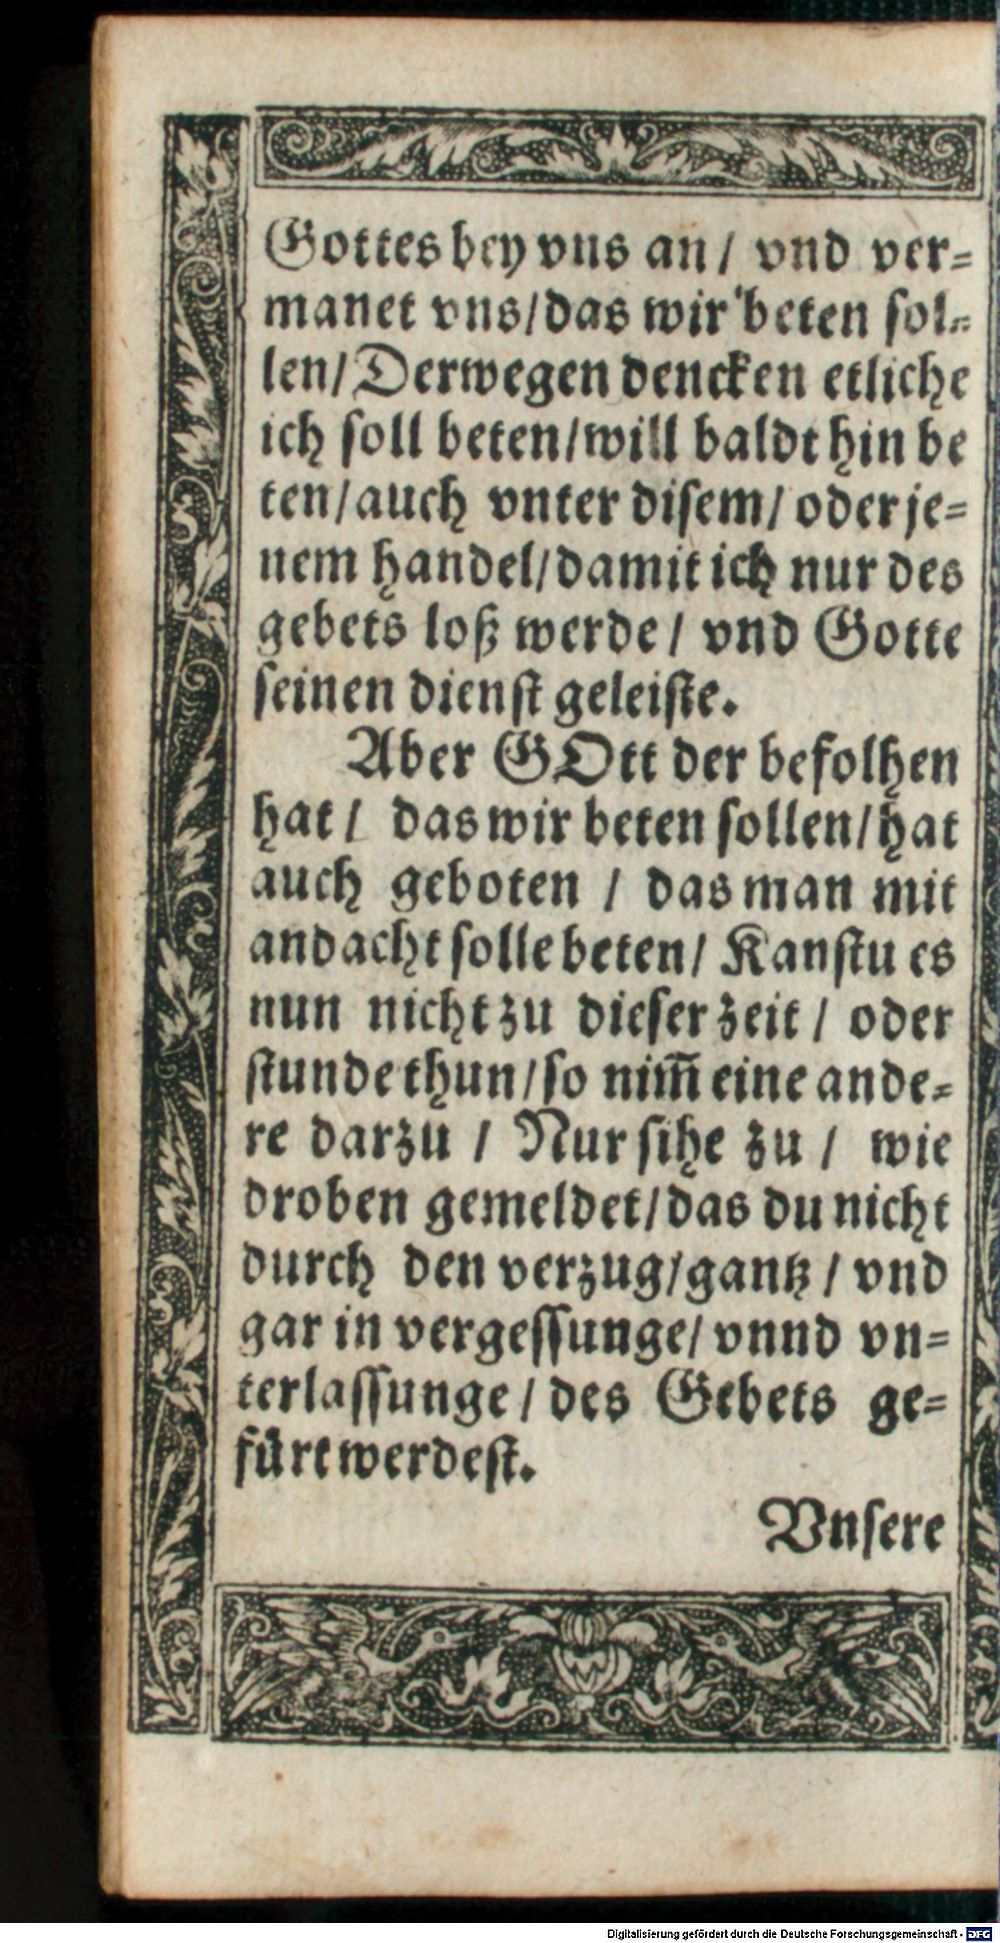 Gottes bey vns an / vnd ver=
manet vns/das wir beten sol=
len/Derwegen dencken etliche
ich soll beten/will baldt hin be
ten/auch vnter disem/ oder je=
nem handel/damit ich nur des
gebets loß werde / vnd Gotte
seinen dienst geleiste.
Aber GOtt der befolhen
hat / das wir beten sollen/hat
auch geboten / das man mit
andacht solle beten/ Kanstu es
nun nicht zu dieser zeit / oder
stunde thun/so nim̅ eine ande=
re darzu / Nur sihe zu / wie
droben gemeldet/das du nicht
durch den verzug/gantz / vnd
gar in vergessunge/ vnnd vn=
terlassunge / des Gebets ge=
fürt werdest.
Vnsere
Digitalisierung gefördert durch die Deutsche Forschungsgemeinschaft - DFG